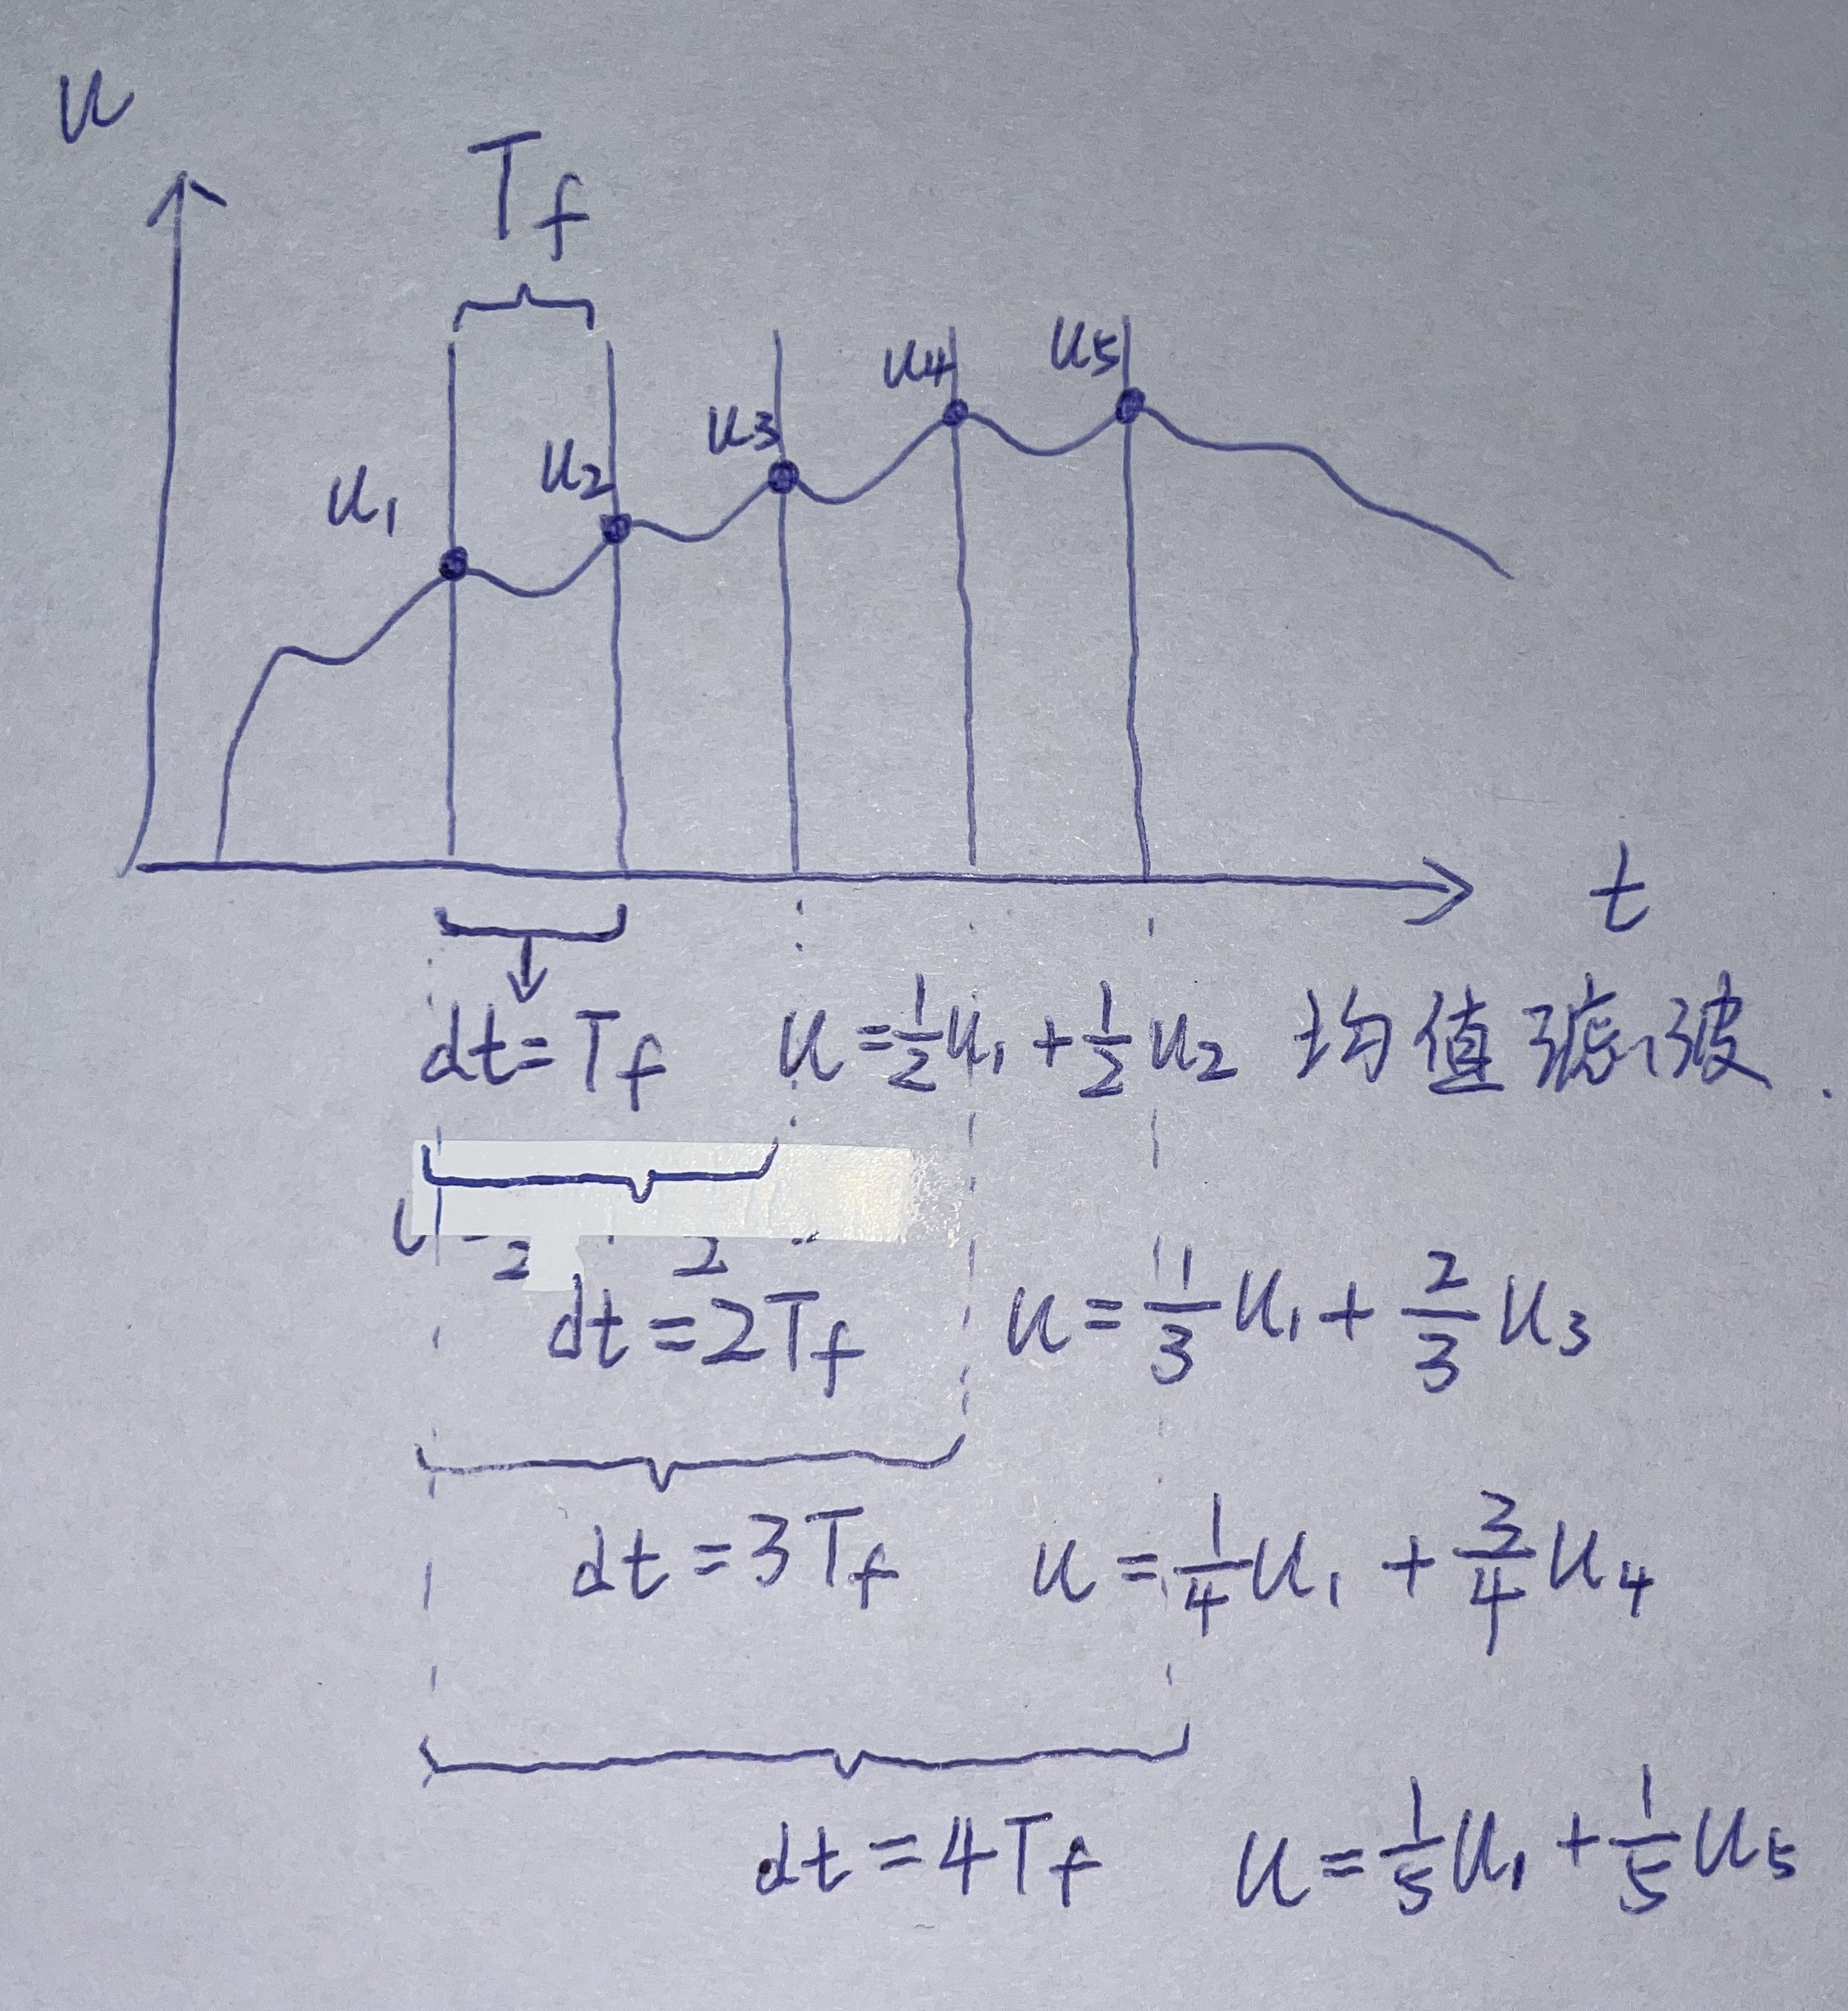 u
T_f
u₁ u₂ u₃ u₄ u₅
t
dt=T_f u=1/2u₁+1/2u₂ 均值滤波.
2 2
dt=2T_f u=1/3u₁+2/3u₃
dt=3T_f u=1/4u₁+3/4u₄
dt=4T_f u=1/5u₁+1/5u₅